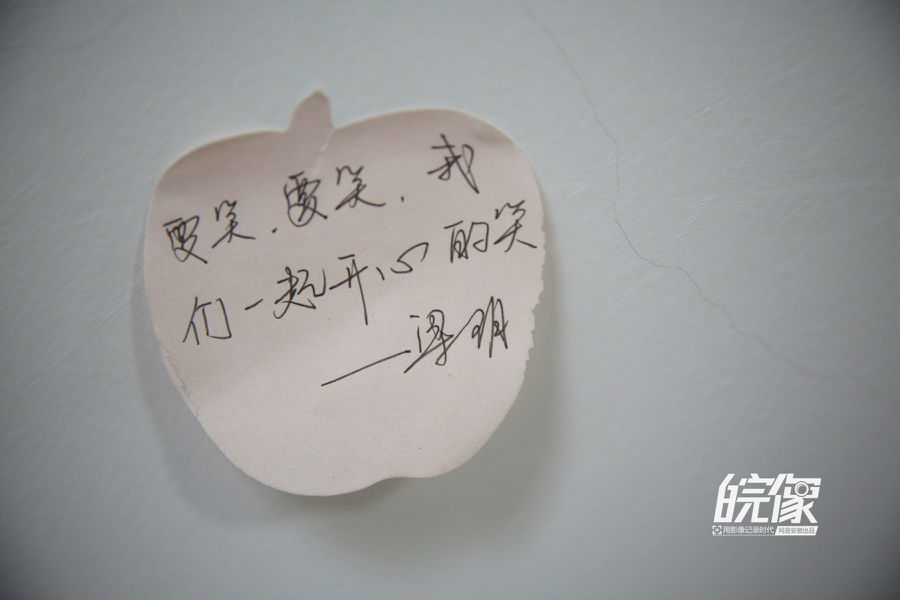 要笑.要笑.我
们一起开心的笑
——梁玥
皖像
用影像记录时代 网易安徽出品